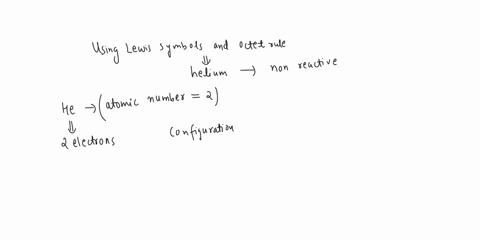 Using Lewis symbols and octet rule
⇓
helium → non reactive
He → (atomic number = 2)
⇓
2 electrons configuration